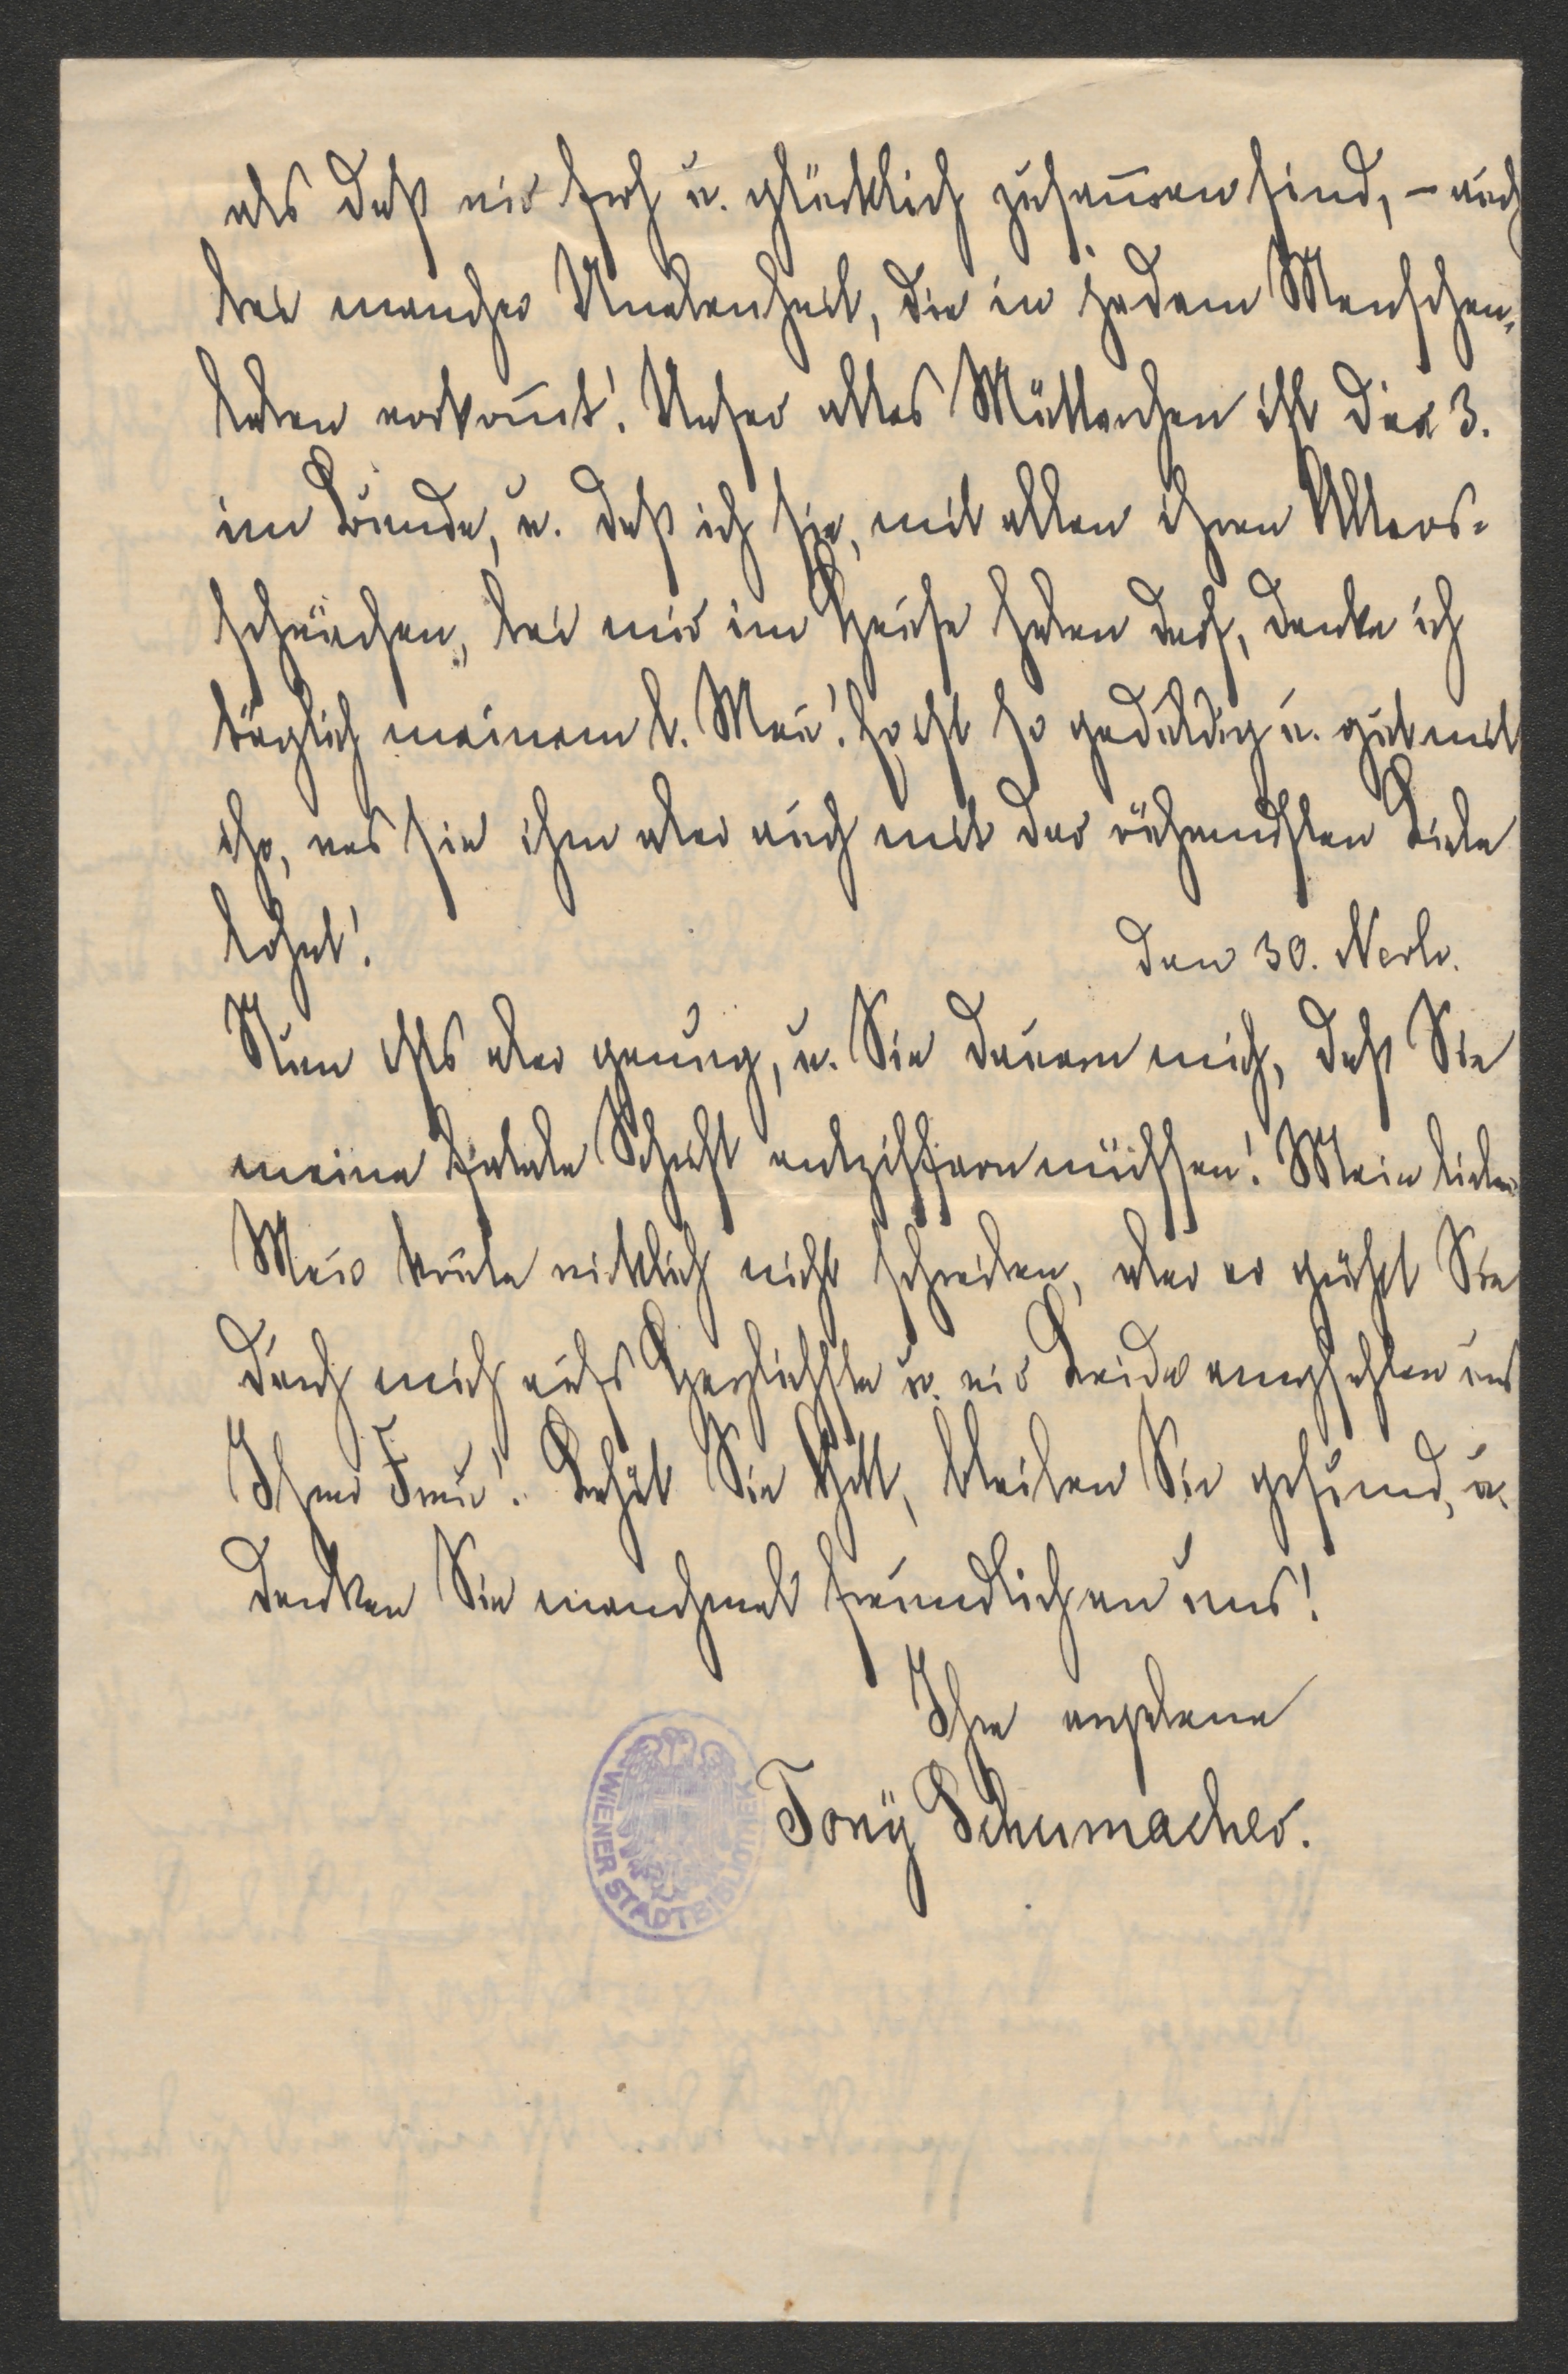 als daß wir froh u. glücklich zusam̅en sind, – auch
bei mancher Unebenheit, die in jedem Menschen-
leben vorkom̅t! Unser altes Mütterchen ist die 3.
im Bunde, u. daß ich sie, mit allen ihren Alters-
schwächen, bei mir im Hause haben darf, danke ich
täglich meinem l. Man̅! Er ist so geduldig u. gut mit
ihr, was sie ihm aber auch mit der rührendsten Liebe
lohnt!
Den 30. Novb.
Nun ists aber genug, u. Sie dauern mich, daß Sie
meine fatale Schrift entziffern müssen! Mein lieber
Man̅ kon̅te wirklich nicht schreiben, aber er grüßt Sie
durch mich aufs Herzlichste u. wir Beide empfehlen uns
Ihrer Frau! Behüt Sie Gott, bleiben Sie gesund, u.
denken Sie manchmal freundlich an uns!
Ihre ergebene
Tony Schumacher.
WIENER STADTBIBLIOTHEK